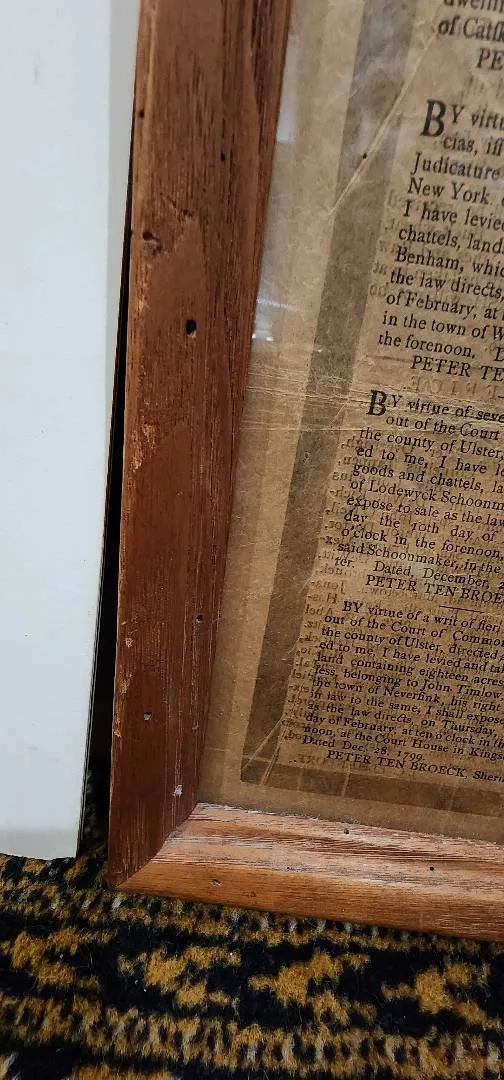 of Catsk
BY virtu
cias, iss
Judicature
New York,
I have levied
chattels, land
Benham, whic
the law directs,
of February, at
in the town of W
the forenoon.
PETER TE
BY virtue of seve
out of the Court
the county of Ulster,
ed to me, I have le
goods and chattels, la
of Lodewyck Schoonm
expose to sale as the law
day the 10th day of
o'clock in the forenoon,
said Schoonmaker, in the
ter. Dated December, 2
PETER TEN BROE
BY virtue of a writ of fieri
out of the Court of Common
the county of Ulster, directed
ed to me, I have levied and tak
land containing eighteen acres
less, belonging to John Timlow
the town of Neversink, his right
in law to the same, I shall expos
as the law directs, on Thursday,
day of February, at ten o'clock in
noon, at the Court House in Kings
Dated Dec. 28, 1799.
PETER TEN BROECK, Sheri